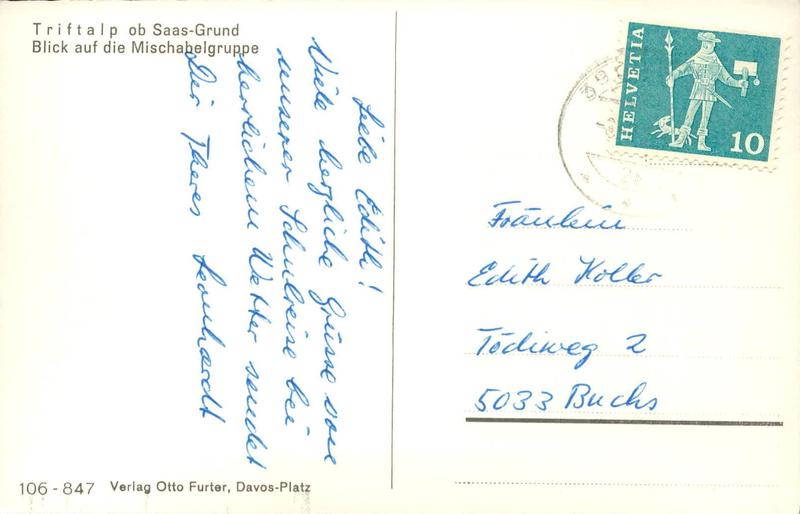 Triftalp ob Saas-Grund
Blick auf die Mischabelgruppe
Liebe Edith!
Viele herzliche Grüsse von
unserer Schulreise bei
herrlichem Wetter sendet
Dir Theres Leonhardt
HELVETIA
10
Fräulein
Edith Koller
Tödiweg 2
5033 Buchs
106 - 847 Verlag Otto Furter, Davos-Platz